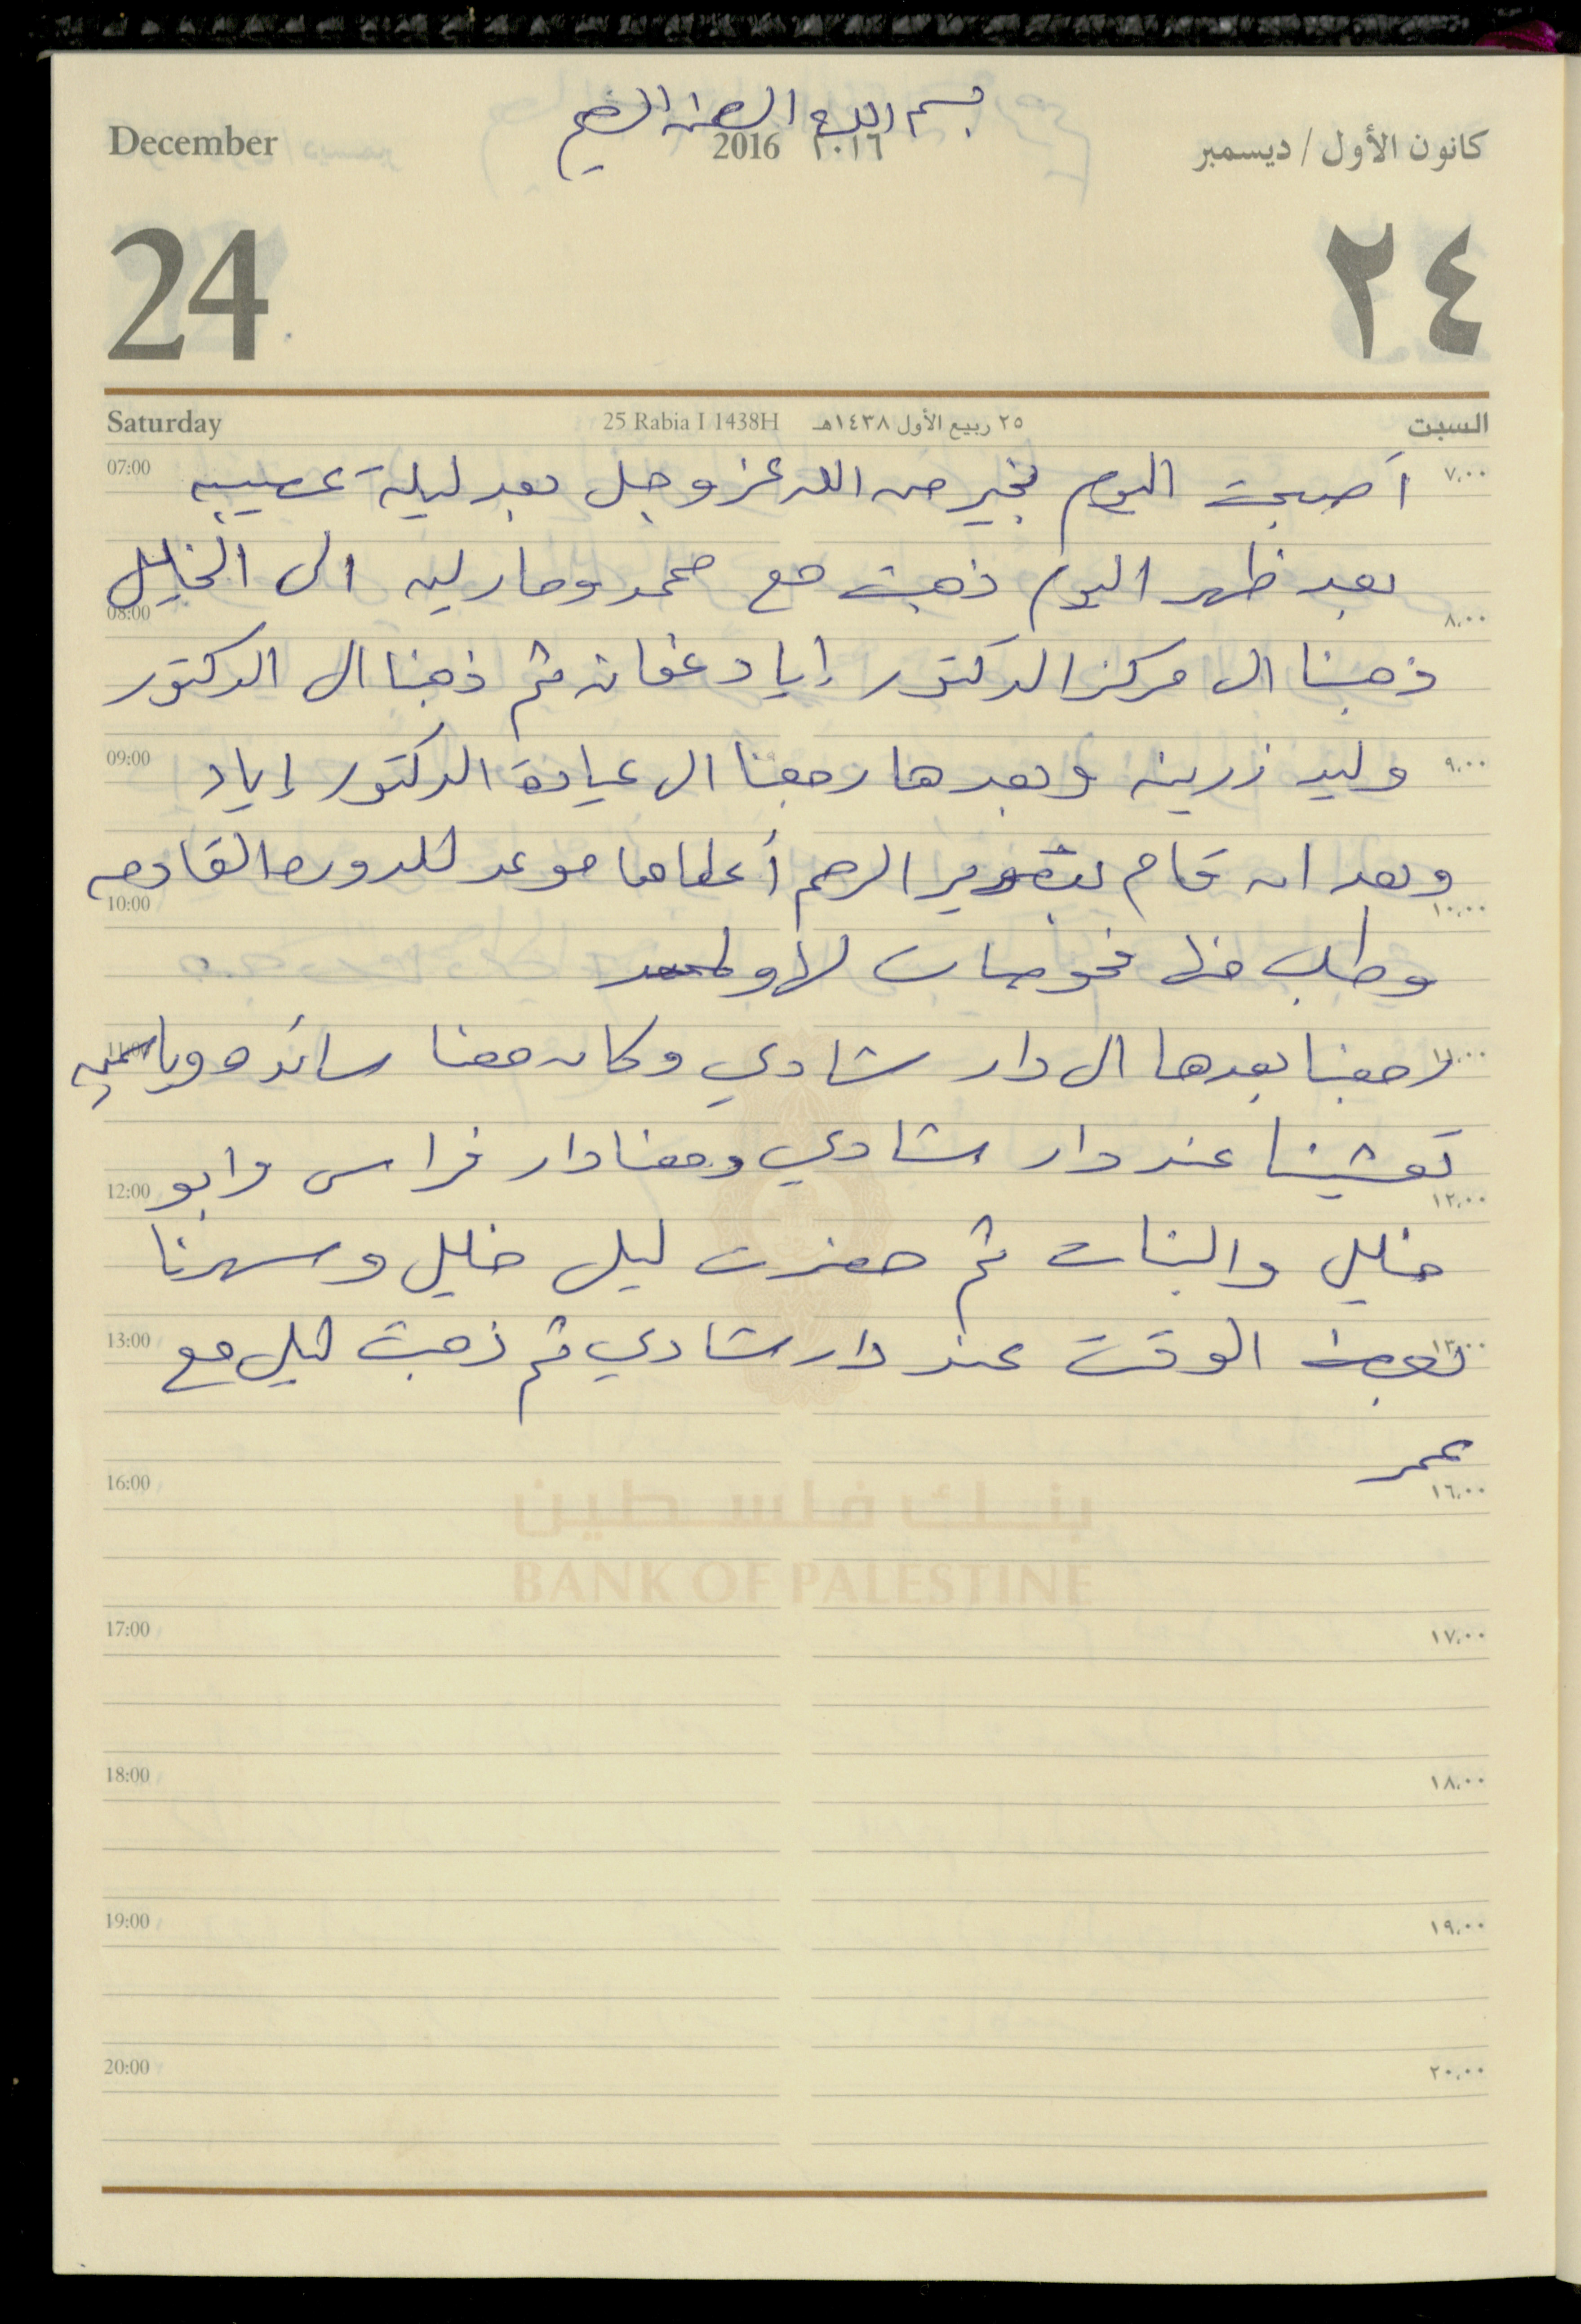 بسم الله الرحمن الرحيم
December 2016 ٢٠١٦ كانون الأول / ديسمبر
24 ٢٤
Saturday 25 Rabia I 1438H ٢٥ ربيع الأول ١٤٣٨هـ السبت
07:00 أصبحت اليوم بخير من الله عز وجل بعد ليلة عصيبه ٧،٠٠
بعد ظهر اليوم ذهبت مع محمد ومارلين الى الخليل
08:00 ٨،٠٠
ذهبنا الى مركز الدكتور إياد عفانه ثم ذهبنا الى الدكتور
09:00 وليد زرينه وبعدها رجعنا الى عيادة الدكتور إياد ٩،٠٠
وبعد ان قام بتصوير الرحم أعطاها موعد للدوره القادمه
10:00 ١٠،٠٠
وطلب منها فحوصات لها ولمحمد
رجعنا بعدها الى دار شادي وكان معنا سائده وياسمين ١١،٠٠
تعشينا عند دار شادي ومعنا دار فراس وابو
12:00 ١٢،٠٠
خليل والبنات ثم حضرت ليلى خليل وسهرنا
13:00 بعض الوقت عند دار شادي ثم ذهبت ليلى مع ١٣،٠٠
عمر
16:00 ١٦،٠٠
بنك فلسطين
BANK OF PALESTINE
17:00 ١٧،٠٠
18:00 ١٨،٠٠
19:00 ١٩،٠٠
20:00 ٢٠،٠٠